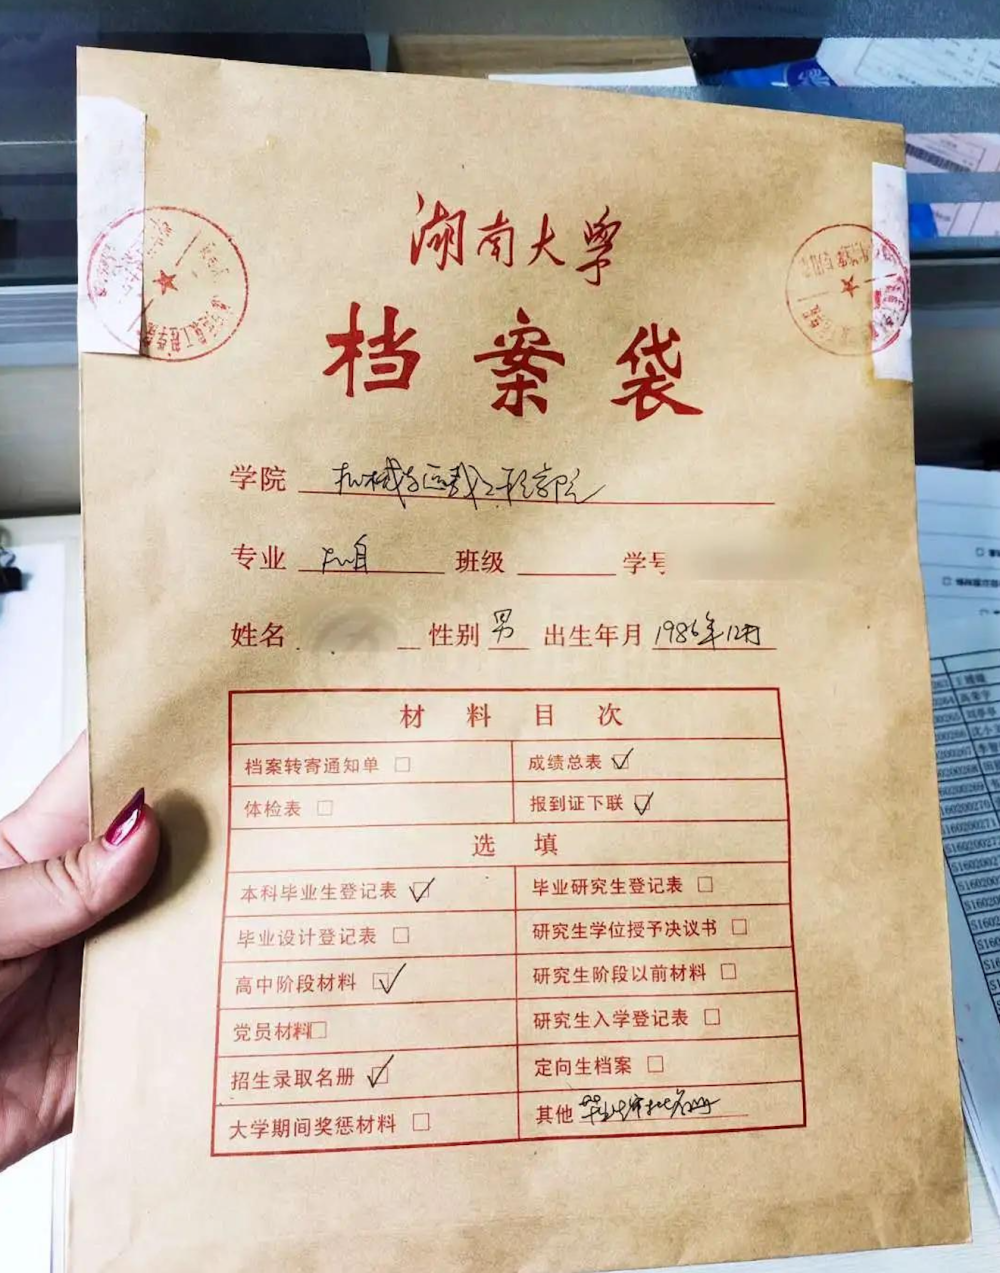 湖南大学
档案袋
学院 机械与运载工程学院
专业 机自 班级 学号
姓名 性别 男 出生年月 1986年12月
材料目次
档案转寄通知单 □ 成绩总表 ☑
体检表 □ 报到证下联 ☑
选填
本科毕业生登记表 ☑ 毕业研究生登记表 □
毕业设计登记表 □ 研究生学位授予决议书 □
高中阶段材料 ☑ 研究生阶段以前材料 □
党员材料 □ 研究生入学登记表 □
招生录取名册 ☑ 定向生档案 □
大学期间奖惩材料 □ 其他 毕业审批名册
S160200270
S160200271